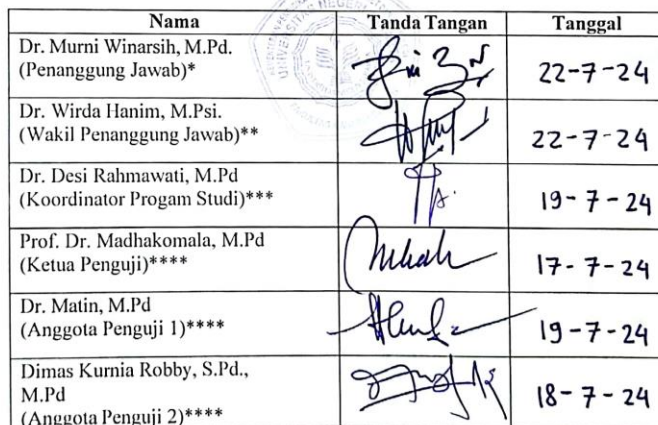 Nama Tanda Tangan Tanggal
Dr. Murni Winarsih, M.Pd.
(Penanggung Jawab)* 22-7-24
Dr. Wirda Hanim, M.Psi.
(Wakil Penanggung Jawab)** 22-7-24
Dr. Desi Rahmawati, M.Pd
(Koordinator Progam Studi)*** 19-7-24
Prof. Dr. Madhakomala, M.Pd
(Ketua Penguji)**** 17-7-24
Dr. Matin, M.Pd
(Anggota Penguji 1)**** 19-7-24
Dimas Kurnia Robby, S.Pd.,
M.Pd 18-7-24
(Anggota Penguji 2)****